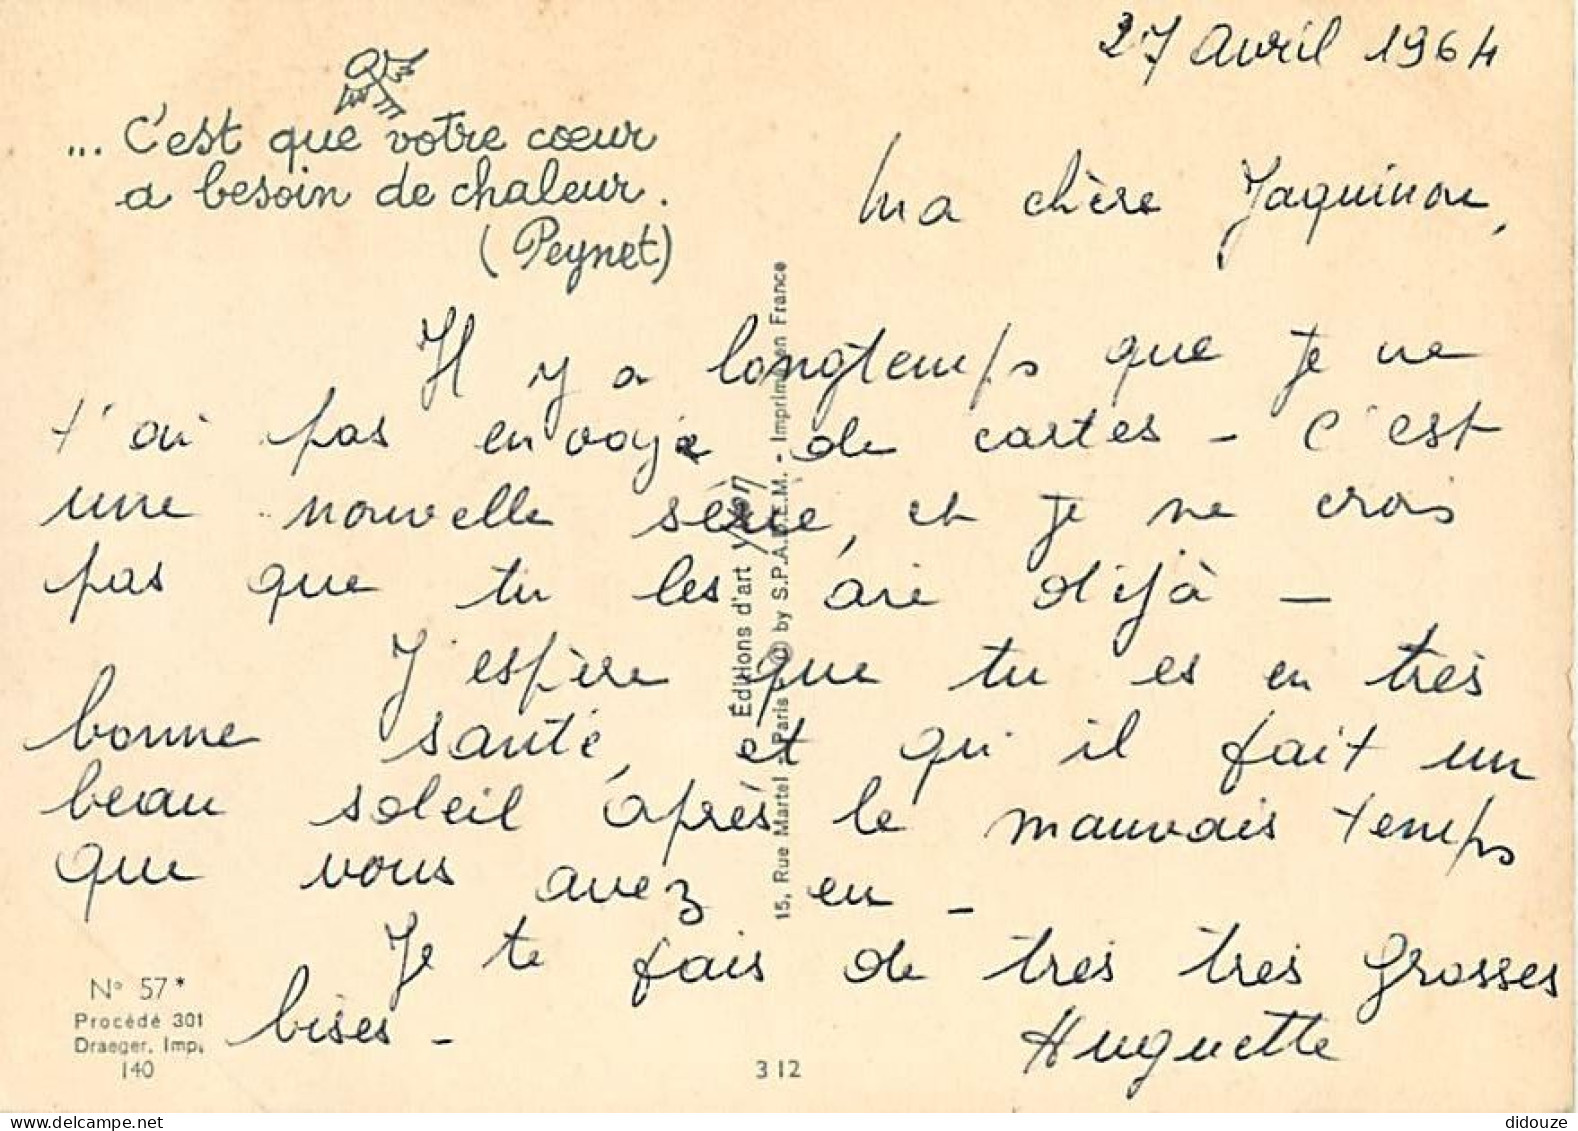 27 Avril 1964
... C'est que votre cœur
a besoin de chaleur.
(Peynet)
Ma chère Jaquinou,
Il y a longtemps que je ne
t'ai pas envoyé de cartes - C'est
une nouvelle série, et je ne crois
pas que tu les aie déjà -
J'espère que tu es en très
bonne santé, et qu'il fait un
beau soleil après le mauvais temps
que vous avez eu -
Je te fais de très très grosses
bises -
Huguette
Éditions d'art Yvon
15, Rue Martel - Paris © by S.P.A.D.E.M. - Imprimé en France
N° 57*
Procédé 301
Draeger, Imp.
140
312
didouze